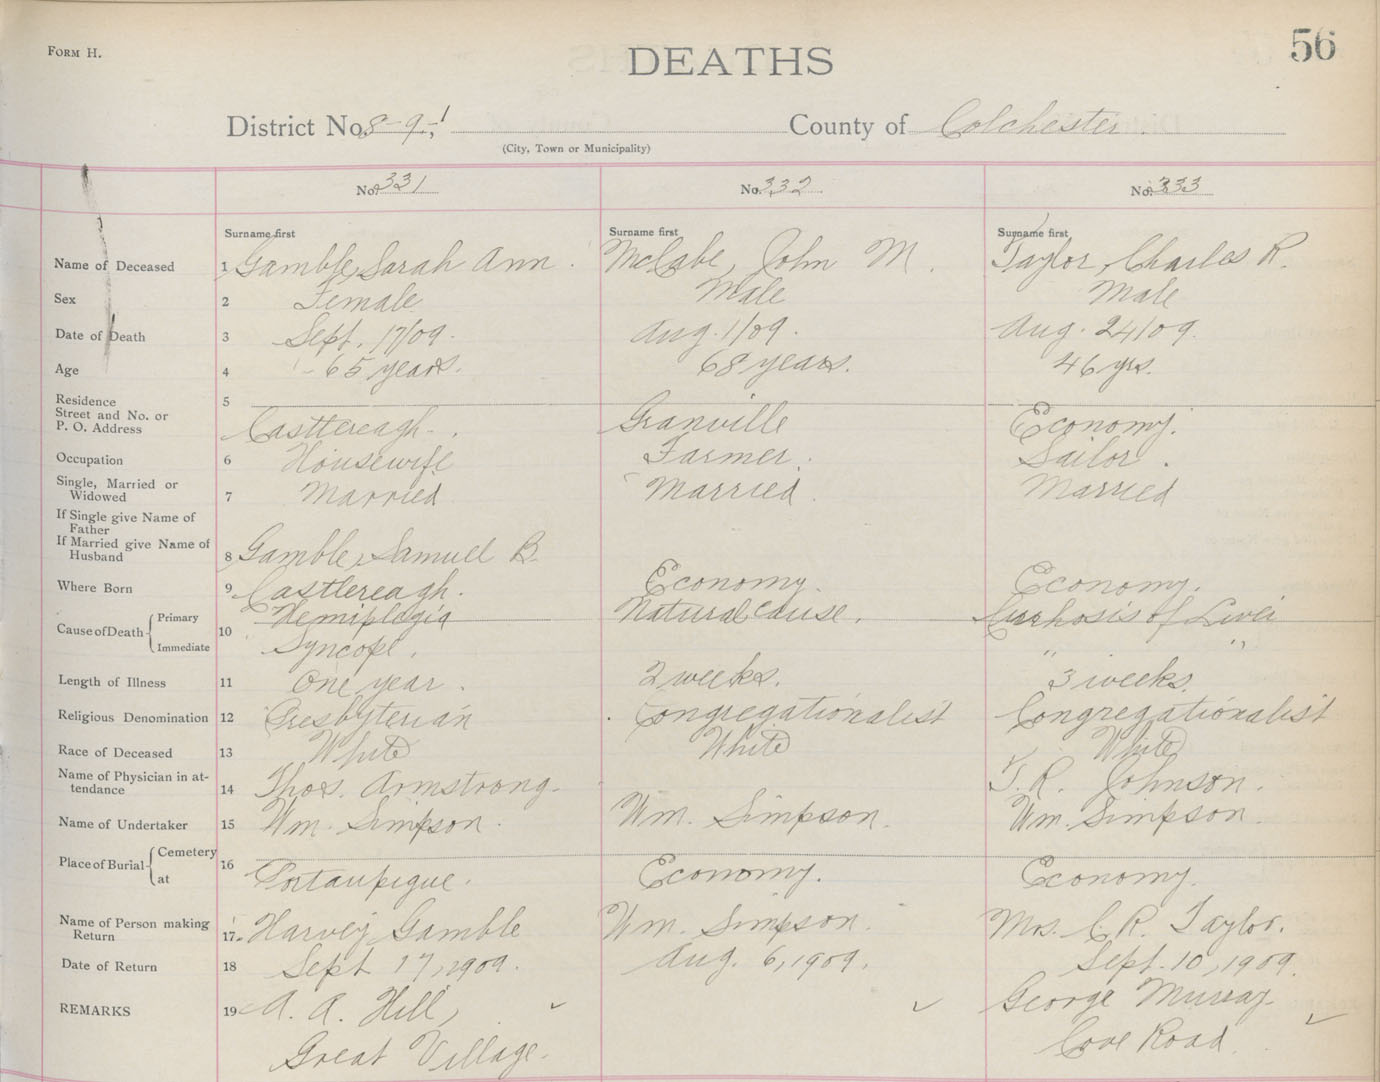 FORM H.
DEATHS
56
District No. 8-9-1 County of Colchester
(City, Town or Municipality)
No. 331 No. 332 No. 333
Surname first Surname first Surname first
Name of Deceased 1 Gamble, Sarah Ann. McCabe, John M. Taylor, Charles R.
Sex 2 Female Male Male
Date of Death 3 Sept. 17/09. Aug. 1/09. Aug. 24/09.
Age 4 65 years. 68 years. 46 yrs.
Residence 5
Street and No. or
P. O. Address Castlereagh. Granville Economy.
Occupation 6 Housewife Farmer. Sailor.
Single, Married or
Widowed 7 Married Married Married
If Single give Name of
Father
If Married give Name of
Husband 8 Gamble, Samuel B.
Where Born 9 Castlereagh. Economy. Economy.
Cause of Death Primary 10 Hemiplegia Natural cause. Cirrhosis of Liver
Immediate Syncope. " "
Length of Illness 11 One year. 2 weeks. 3 weeks.
Religious Denomination 12 Presbyterian Congregationalist Congregationalist
Race of Deceased 13 White White White
Name of Physician in at-
tendance 14 Thos. Armstrong. T. R. Johnson.
Name of Undertaker 15 Wm. Simpson. Wm. Simpson. Wm. Simpson.
Place of Burial Cemetery 16
at Portaupique. Economy. Economy.
Name of Person making
Return 17 Harvey Gamble Wm. Simpson. Mrs. C. R. Taylor.
Date of Return 18 Sept 17, 1909. Aug. 6, 1909. Sept. 10, 1909.
REMARKS 19 A. A. Hill, George Murray
Great Village. Cove Road.